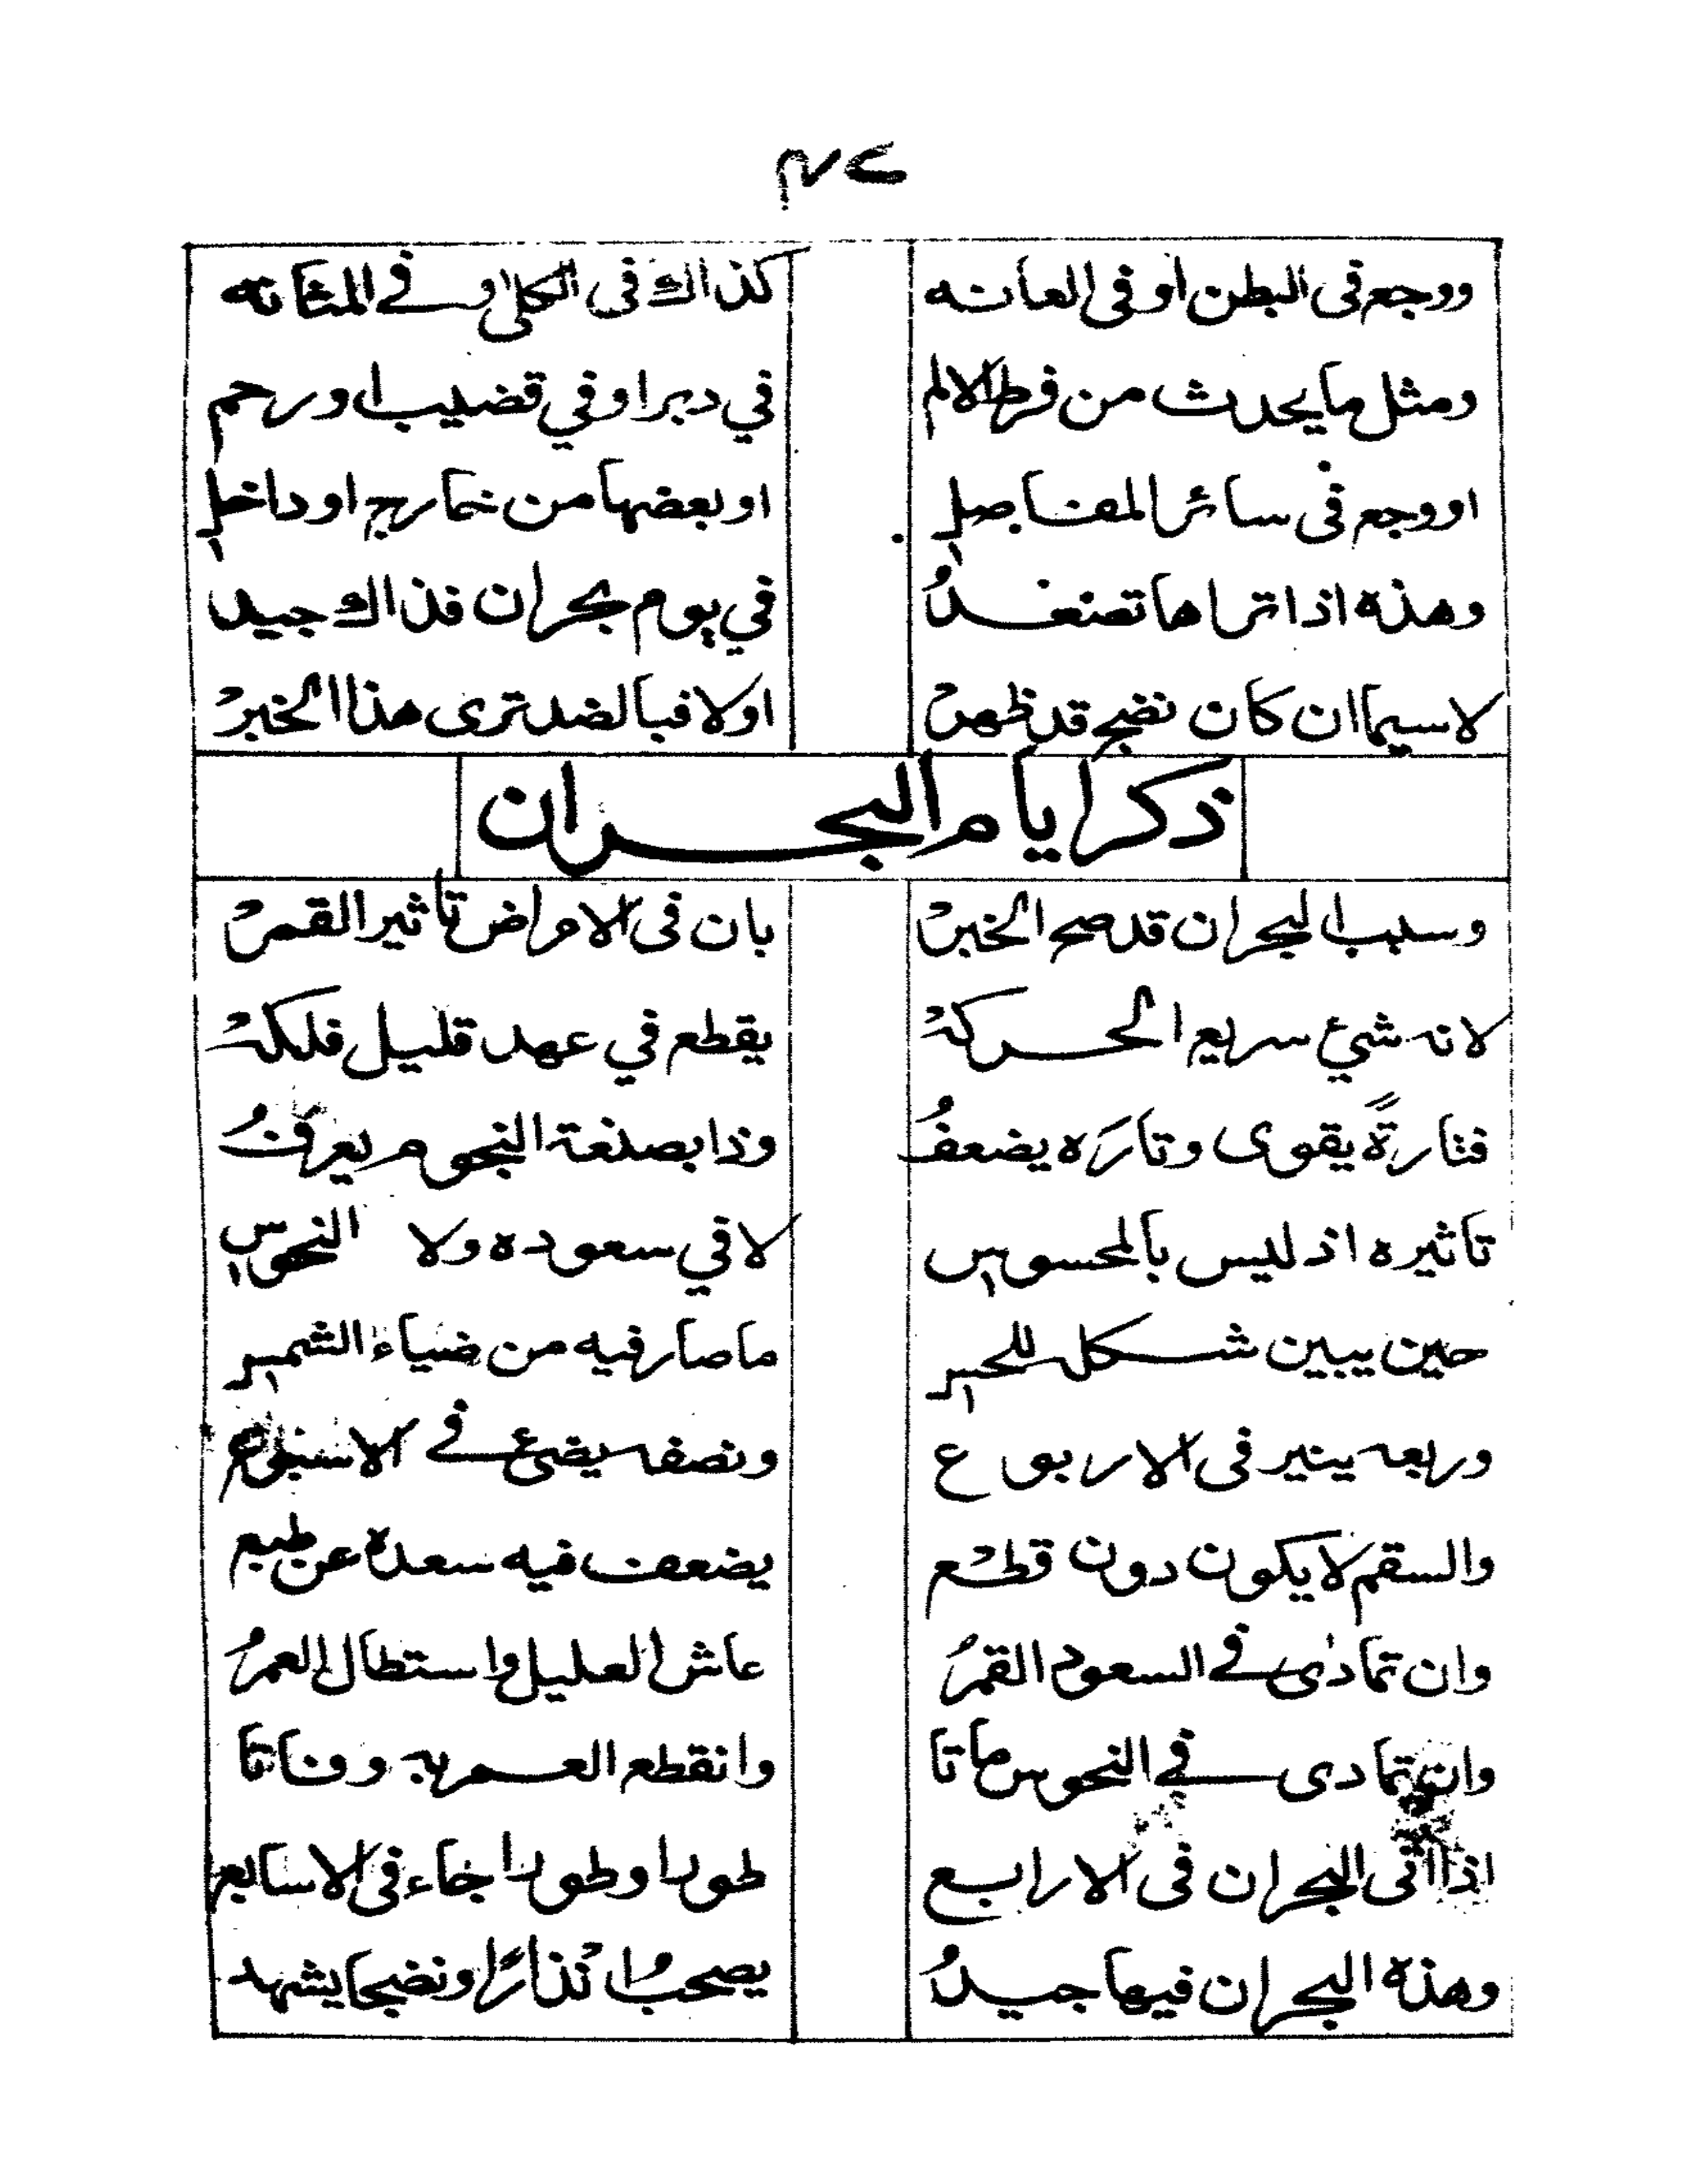 ووجع في البطن او في العانه كذاك في الكلى او في المثانه
ومثل ما يحدث من فرط الالم في دبر او في قضيب او رحم
او وجع في سائر المفاصل او بعضها من خارج او داخل
وهذه اذا تراها تصعدُ في يوم بحران فذاك جيد
لا سيما ان كان نضج قد ظهرْ اولا فبالضد ترى هذا الخبرْ
ذكر ايام البحران
وسبب البحران قد صح الخبرْ بان في الامراض تاثير القمرْ
لانه شيئ سريع الحركةْ يقطع في عهد قليل فلكهْ
فتارةً يقوى وتارَه يضعفُ وذا بصنعة النجوم يعرفُ
تاثيره اذ ليس بالمحسوسِ لا في سعوده ولا النحوسِ
حين يبين شكله للحسِ ما صار فيه من ضياء الشمسِ
وربعه ينير في الاربوع ونصفه يضئ في الاسبوع
والسقم لا يكون دون قطْع يضعف فيه سعده عن طبع
وان تمادى في السعود القمرُ عاش العليل واستطال العمرُ
وان تمادى في النحوس ماتا وانقطع العمر به وفاتا
اذا اتى البحران في الارابع طورا وطورا جاء في الاسابع
وهذه البحران فيها جيدُ يصحبُ انْذارًا ونضجا يشهد